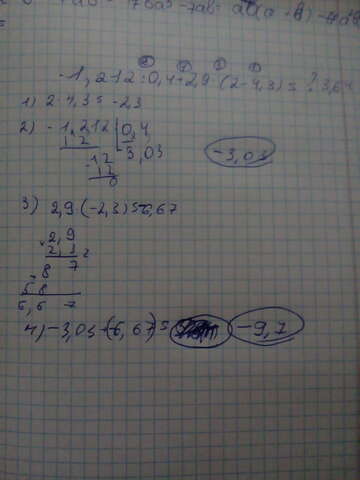 -1,212:0,4+2,9(2-4,3)=?3,64
1) 2-4,3=-2,3
2) -1,212 | 0,4
12 3,03
-12
12
0
-3,03
3) 2,9(-2,3)=-6,67
2,9
2,3
8 7
58
6,6 7
4) -3,03+(-6,67)= -9,7